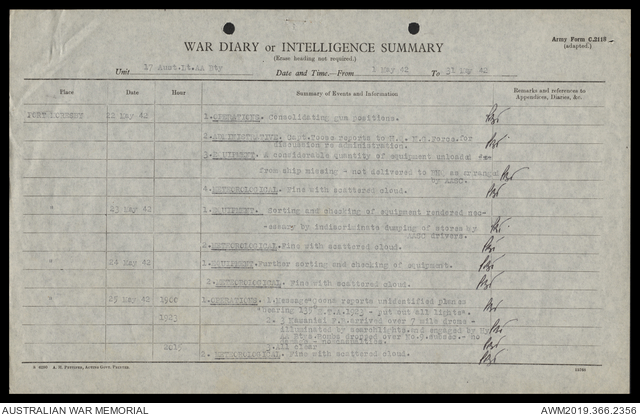 Army Form C.2118
(adapted.)
WAR DIARY or INTELLIGENCE SUMMARY
(Erase heading not required.)
Unit 17 Aust.Lt.AA Bty Date and Time.—From 1 May 42 To 31 May 42
Place Date Hour Summary of Events and Information Remarks and references to Appendices, Diaries, &c.
PORT MORESBY 22 May 42 1. OPERATIONS. Consolidating gun positions.
2. ADMINISTRATIVE. Capt. reports to for
discussion re administration.
3. EQUIPMENT. A considerable quantity of equipment unloaded
from ship missing - not delivered to as arranged
by AASC.
4. METEOROLOGICAL. Fine with scattered cloud.
" 23 May 42 1. EQUIPMENT. Sorting and checking of equipment rendered nec-
essary by indiscriminate dumping of stores by
AASC drivers.
2. METEOROLOGICAL. Fine with scattered cloud.
" 24 May 42 1. EQUIPMENT. Further sorting and checking of equipment.
2. METEOROLOGICAL. Fine with scattered cloud.
" 25 May 42 1900 1. OPERATIONS. 1. Message reports unidentified plane
bearing - put out all lights".
1923 2. 3 arrived over 7 mile drome -
illuminated by searchlights and engaged by Hy
AA
2015 3. All clear.
2. METEOROLOGICAL. Fine with scattered cloud.
AUSTRALIAN WAR MEMORIAL
AWM2019.366.2356